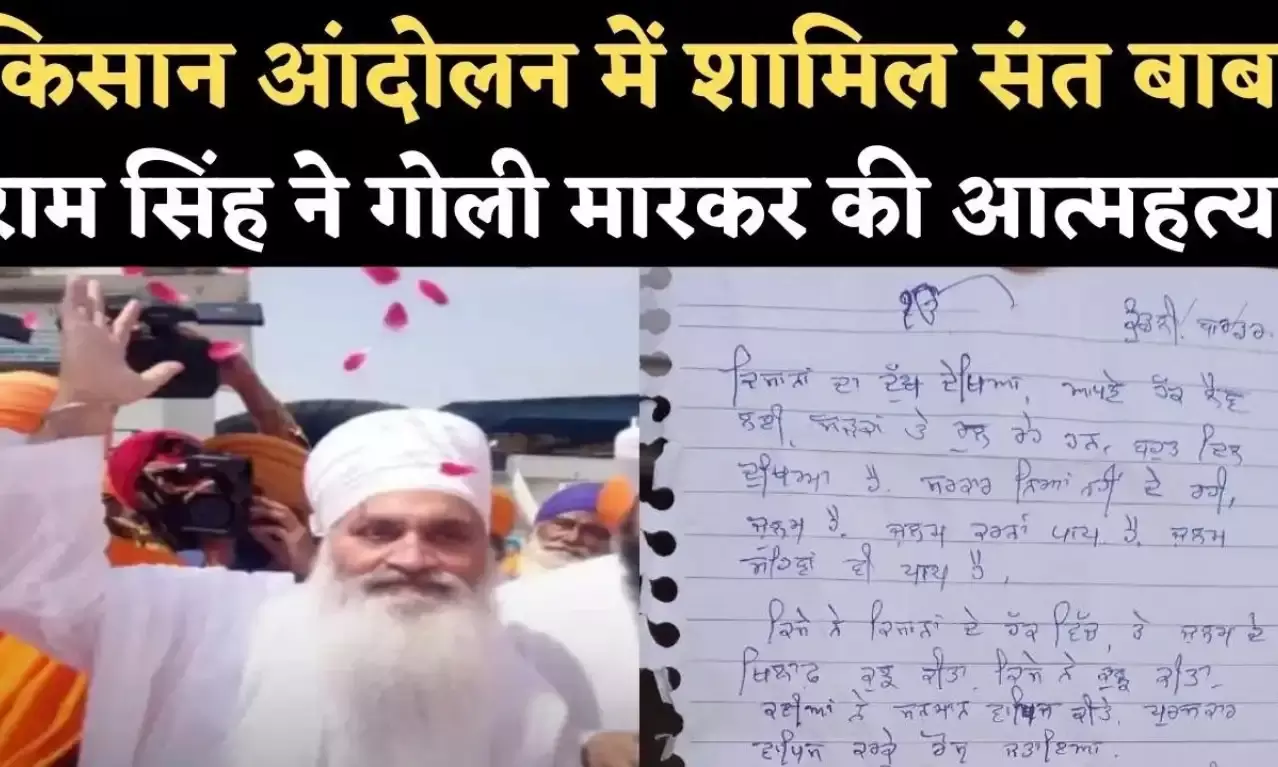 किसान आंदोलन में शामिल संत बाब
राम सिंह ने गोली मारकर की आत्महत्य
ੴ
ਕੁੰਡਲੀ/ਬਾਰਡਰ.
ਕਿਸਾਨਾਂ ਦਾ ਦੁੱਖ ਦੇਖਿਆ, ਆਪਣੇ ਹੱਕ ਲੈਣ
ਲਈ, ਸੜਕਾਂ ਤੇ ਰੁਲ ਰਹੇ ਹਨ, ਬਹੁਤ ਦਿਲ
ਦੁਖਿਆ ਹੈ. ਸਰਕਾਰ ਨਿਆਂ ਨਹੀਂ ਦੇ ਰਹੀ,
ਜ਼ੁਲਮ ਹੈ. ਜ਼ੁਲਮ ਕਰਨਾ ਪਾਪ ਹੈ, ਜ਼ੁਲਮ
ਸਹਿਣਾ ਵੀ ਪਾਪ ਹੈ,
ਕਿਸੇ ਨੇ ਕਿਸਾਨਾਂ ਦੇ ਹੱਕ ਵਿੱਚ, ਤੇ ਜ਼ੁਲਮ ਦੇ
ਖਿਲਾਫ ਕੁਝ ਕੀਤਾ, ਕਿਸੇ ਨੇ ਕੁਝ ਕੀਤਾ
ਕਈਆਂ ਨੇ ਸਨਮਾਨ ਵਾਪਿਸ ਕੀਤੇ, ਪੁਰਸਕਾਰ
ਵਾਪਿਸ ਕਰਕੇ ਰੋਸ ਜਤਾਇਆ.